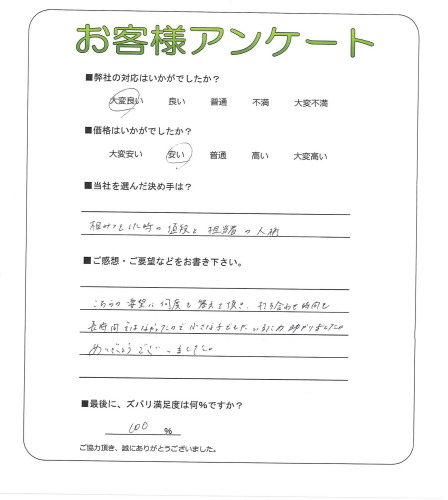 お客様アンケート
■弊社の対応はいかがでしたか？
大変良い 良い 普通 不満 大変不満
■価格はいかがでしたか？
大変安い 安い 普通 高い 大変高い
■当社を選んだ決め手は？
相みつをした時の値段と担当者の人柄
■ご感想・ご要望などをお書き下さい。
こちらの要望に何度も答えて頂き、打ち合わせ時間も
長時間ではなかったので小さな子どもが
ありがとうございました。
■最後に、ズバリ満足度は何％ですか？
100 ％
ご協力頂き、誠にありがとうございました。